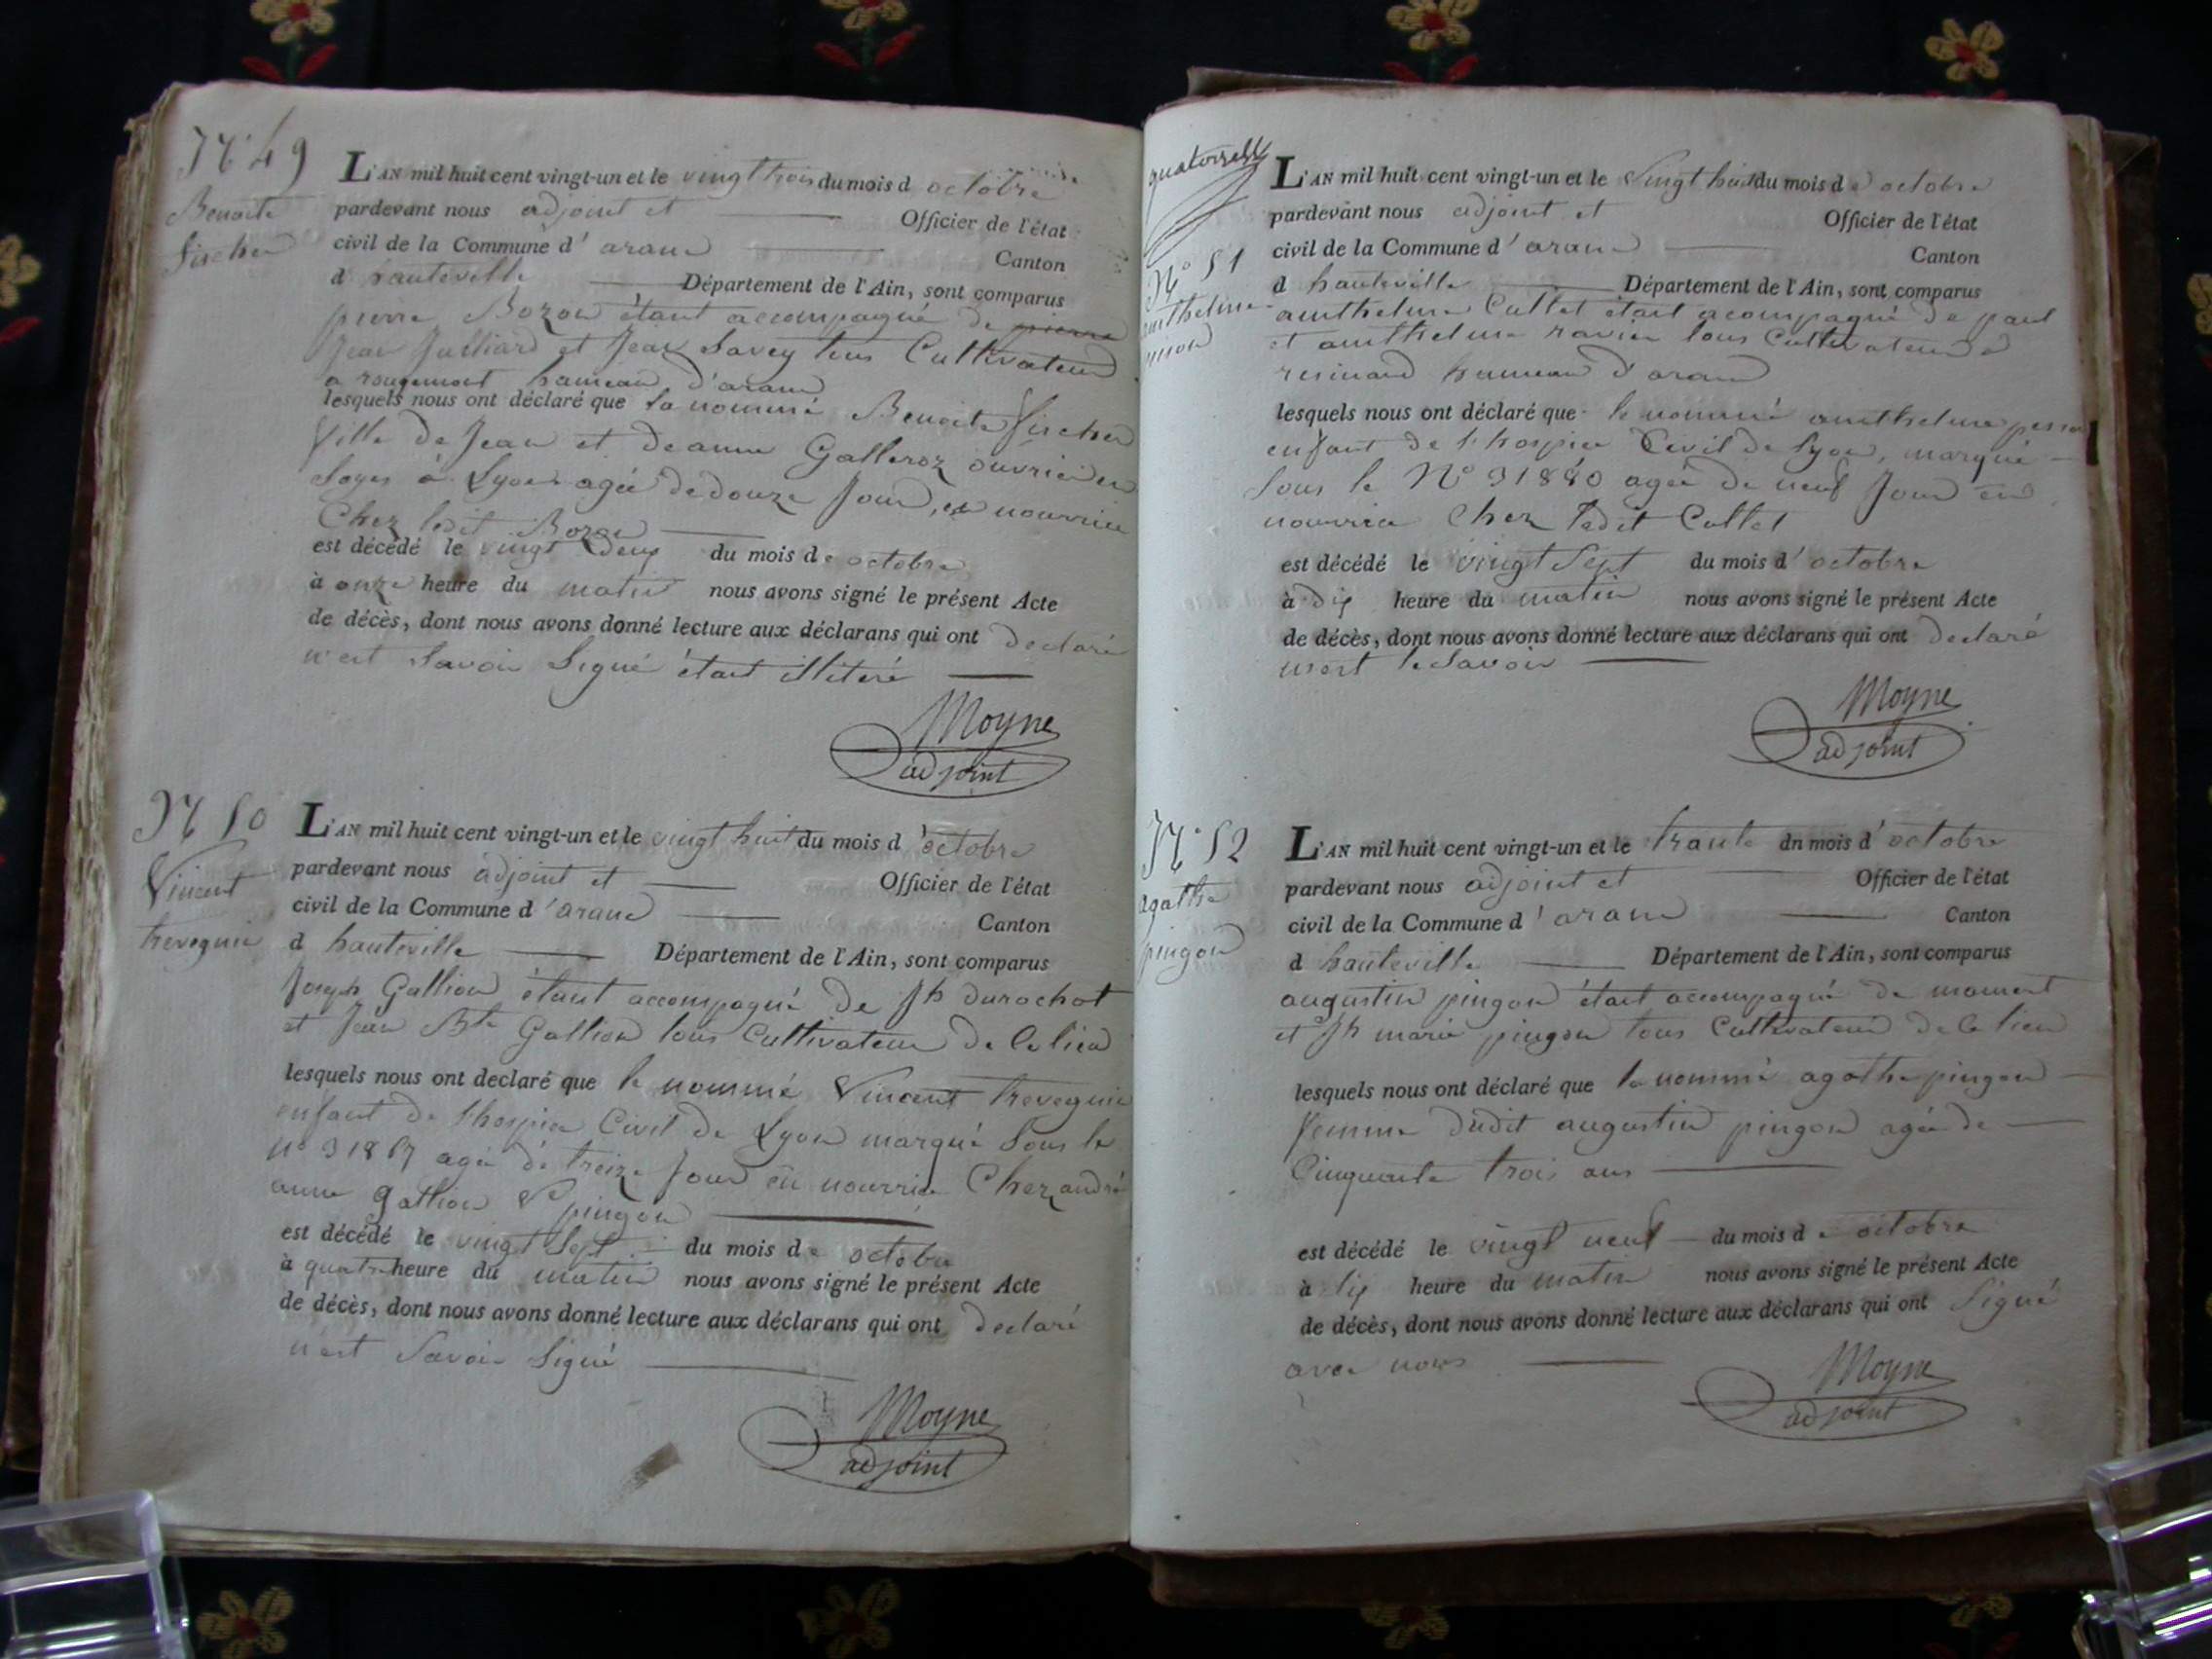 N° 49
Benoite
fischer
L'AN mil huit cent vingt-un et le vingt trois du mois d octobre
pardevant nous adjoint et Officier de l'état
civil de la Commune d' aranc Canton
d hauteville Département de l'Ain, sont comparus
pierre Bozon étant accompagné de pierre
Jean Julliard et Jean Savey tous Cultivateurs
a rougemont hameau d'aranc
lesquels nous ont déclaré que la nommé Benoite fischer
fille de Jean et de anne Galleroz ouvrier en
Soyes à Lyon agée de douze Jours, en nourrice
Chez ledit Bozon
est décédé le vingt deux du mois de octobre
à onze heure du matin nous avons signé le présent Acte
de décès, dont nous avons donné lecture aux déclarans qui ont declaré
n'ent Savoir Signé étant illitéré
Moyne
adjoint
N° 50
Vincent
L'AN mil huit cent vingt-un et le vingt huit du mois d'octobre
pardevant nous adjoint et Officier de l'état
civil de la Commune d'aranc Canton
d hauteville Département de l'Ain, sont comparus
Joseph Gallion étant accompagné de Jh durochat
et Jean Bte Gallion tous Cultivateurs de Ce lieu
lesquels nous ont declaré que le nommé Vincent
enfant de l'hospice Civil de Lyon marqué Sous le
n° agé de treize Jours en nourrice Chez andré
anne gallion pingon
est décédé le vingt Sept du mois de octobre
à quatre heure du matin nous avons signé le présent Acte
de décès, dont nous avons donné lecture aux déclarans qui ont declaré
n'ent Savoir Signé
Moyne
adjoint
N° 51
anthelme
L'AN mil huit cent vingt-un et le Vingt huit du mois de octobre
pardevant nous adjoint et Officier de l'état
civil de la Commune d'aranc Canton
d hauteville Département de l'Ain, sont comparus
anthelme Cullet étant acompagné de paul
et anthelme ravier tous Cultivateurs a
resinand hameau d'aranc
lesquels nous ont déclaré que le nommé anthelme
enfant de l'hospice Civil de Lyon, marqué
Sous le N° 31880 agée de neuf Jours en
nourrice Chez ledit Cullet
est décédé le vingt Sept du mois d'octobre
à dix heure du matin nous avons signé le présent Acte
de décès, dont nous avons donné lecture aux déclarans qui ont declaré
nent le Savoir
Moyne
adjoint
N° 52
agathe
pingon
L'AN mil huit cent vingt-un et le trante dn mois d'octobre
pardevant nous adjoint et Officier de l'état
civil de la Commune d'aranc Canton
d hauteville Département de l'Ain, sont comparus
augustin pingon étant accompagné de
et Jh marie pingon tous Cultivateurs de Ce lieu
lesquels nous ont déclaré que la nommé agathe pingon
femme dudit augustin pingon agée de
Cinquante trois ans
est décédé le vingt neuf du mois de octobre
à dix heure du matin nous avons signé le présent Acte
de décès, dont nous avons donné lecture aux déclarans qui ont Signé
avec nous
Moyne
adjoint